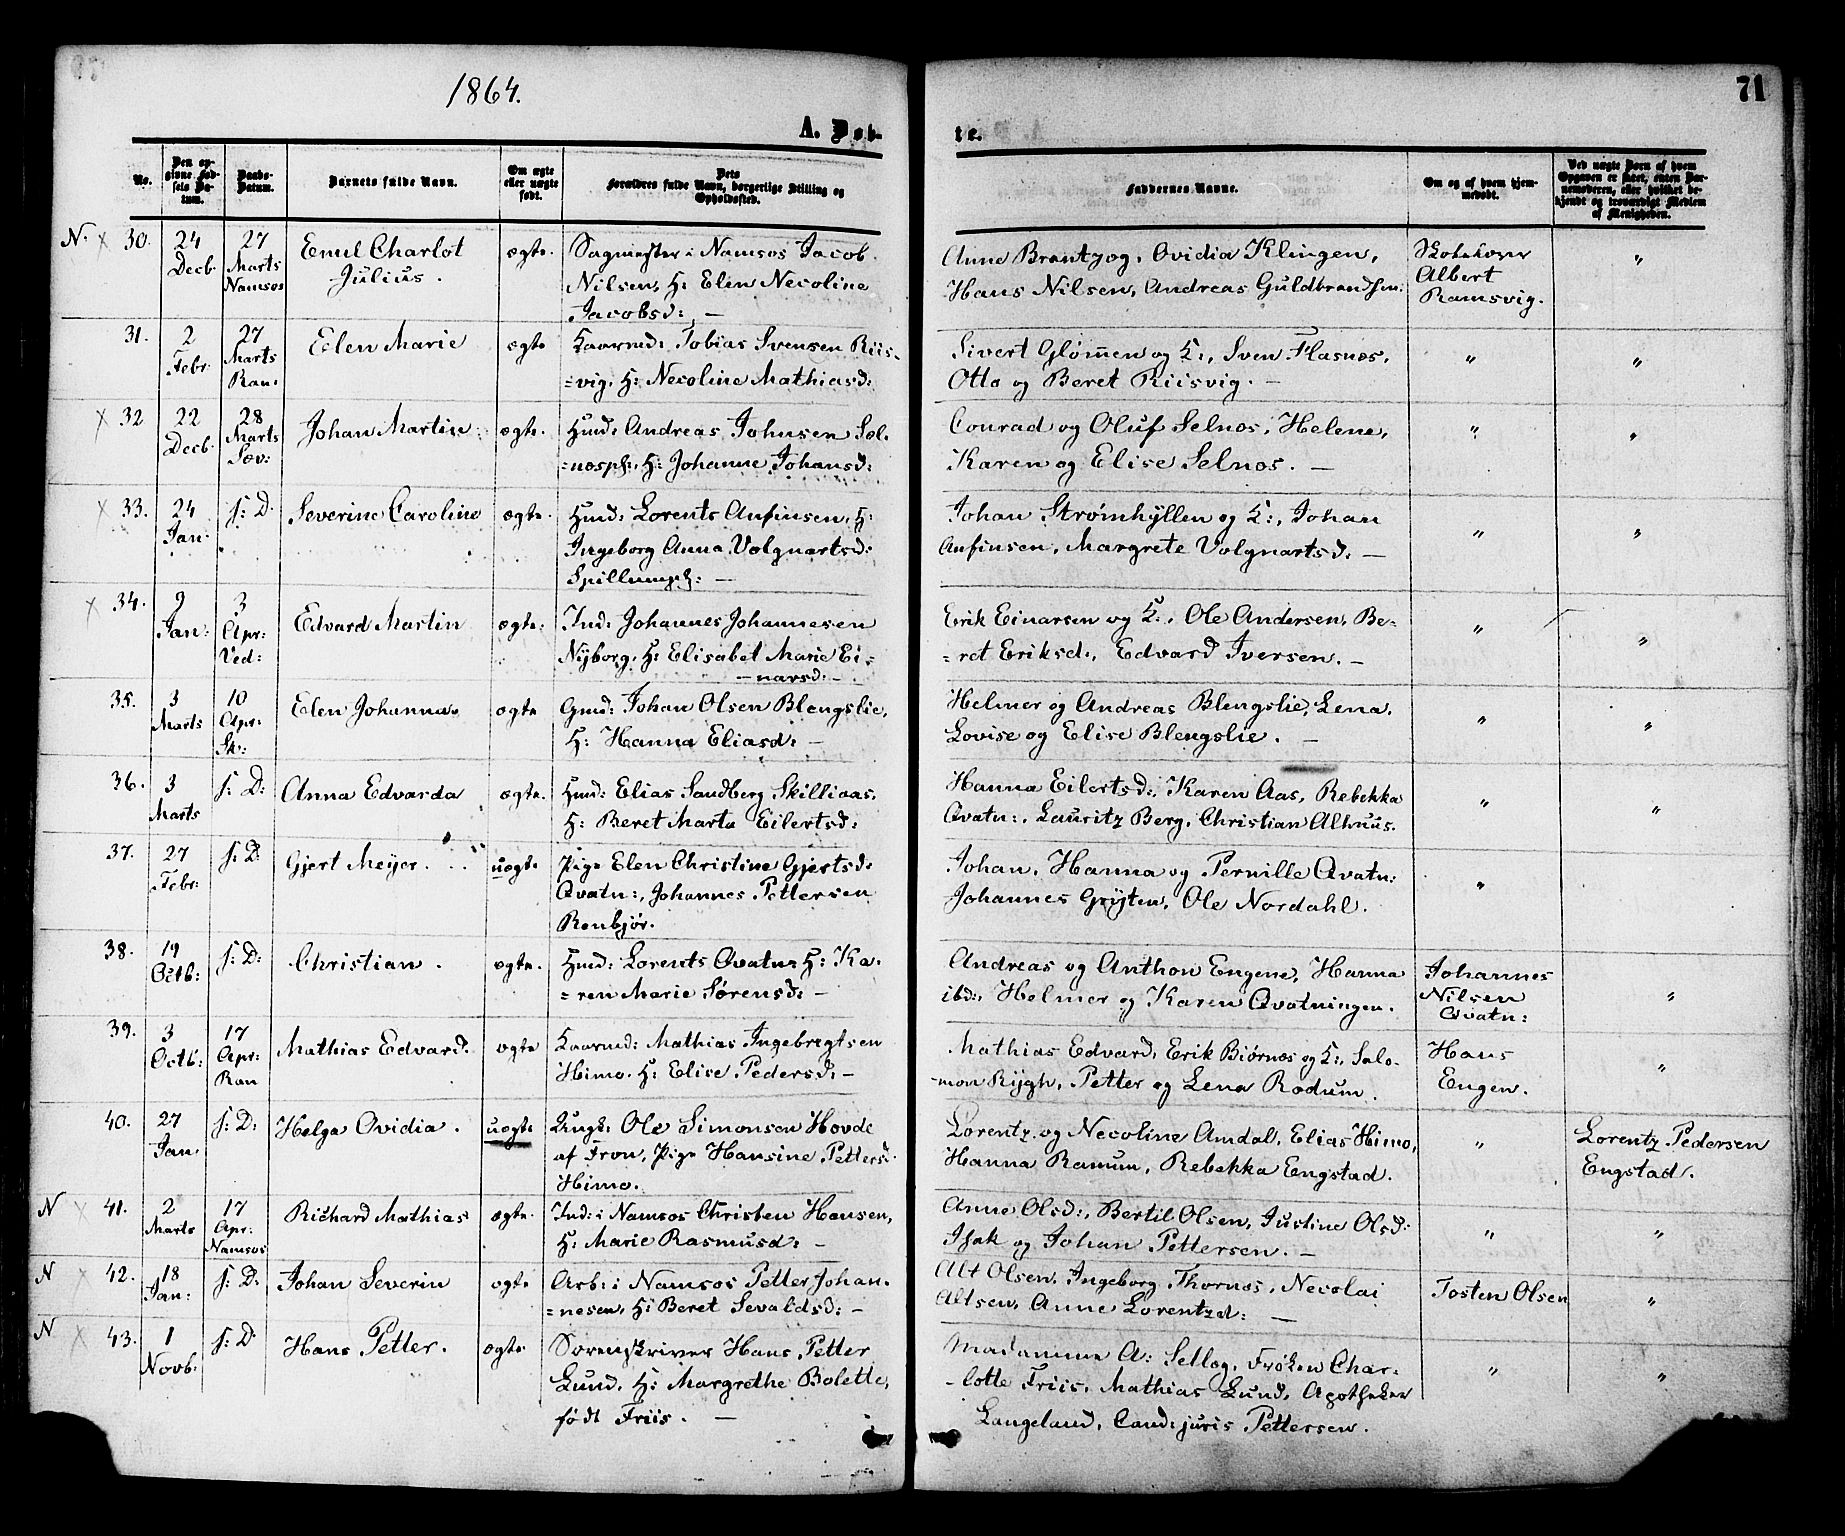 1864.
71
A. Døb-
te.
No.
Den op-
givne Fød-
sels Da-
tum.
Daabs-
Datum.
Barnets fulde Navn.
Om ægte
eller uægte
født.
Dets
Forældres fulde Navn, borgerlige Stilling og
Opholdssted.
Faddernes Navne.
Om og af hvem hjem-
medøbt.
Ved uægte Børn af hvem
Opgaven er skeet, enten Bar-
nemoderen, eller hvilket be-
kjendt og troværdigt Medlem
af Menigheden.
N. × 30.
24
Decb.
27
Marts
Namsos
Emil Charlot
Julius.
ægte.
Sagmester i Namsos Jacob
Nilsen, H: Elen Necoline
Jacobsd: —
Anne Brantzog, Ovidia Klingen,
Hans Nilsen, Andreas Guldbrandsen.
Albert
Ramsvig.
"
31.
2
Febr:
27
Marts
Ran:
Elen Marie
ægte
Kaarmd: Tobias Svensen Riis-
=vig, H: Necoline Mathiasd:
Sivert Glømmen og K:, Sven Flasnes,
Otto og Beret Riisvig. —
"
"
× 32
22
Decb.
28
Marts
Sæv:
Johan Martin
ægte.
Hmd: Andreas Johnsen Sel-
=nespl:, H: Johanne Johansd:
Conrad og Oluf Selnos, Helene,
Karen og Elise Selnos. —
"
"
× 33.
24
Jan:
s: D.
Severine Caroline
ægte.
Hmd: Lorents Anfinsen, H:
Ingeborg Anna Volgnartsd:
Spillumpl: —
Johan Strømhyllen og K:, Johan
Anfinsen, Margrete Volgnartsd: —
"
"
× 34.
9
Jan:
3
Apr:
Ved:
Edvard Martin
ægte:
Ind: Johannes Johannesen
Nyborg, H: Elisabet Marie Ei-
—narsd: —
Erik Einarsen og K:, Ole Andersen, Be-
=ret Eriksd:, Edvard Iversen. —
"
"
35.
3
Marts
10
Apr:
Sk:
Elen Johanna.
ægte
Gmd: Johan Olsen Blengslie,
H: Hanna Eliasd: —
Helmer og Andreas Blengslie, Lena,
Lovise og Elise Blengslie. —
"
"
36.
3
Marts
s: D:
Anna Edvarda
ægte.
Hmd: Elias Sandberg Skilliaas,
H: Beret Marta Eilertsd:
Hanna Eilertsd:, Karen Aas, Rebekka
Qvatn:, Lauritz Berg, Christian Alhuus.
"
"
37.
27
Febr:
s: D.
Gjert Meyer.
uægte
Pige Elen Christine Gjertsd:
Qvatn:, Johannes Pettersen
Renbjør.
Johan, Hanna og Pernille Qvatn:
Johannes Gryten, Ole Nordahl.
"
38.
19
Octb:
s: D:
Christian.
ægte.
Hmd: Lorents Qvatn: H: Ka-
=ren Marie Sørensd: —
Andreas og Anthon Engene, Hanna
ibd:, Helmer og Karen Qvatningen.
Johannes
Nilsen
Qvatn:
"
39.
3
Octb:
17
Apr:
Ran
Mathias Edvard.
ægte
Kaarmd: Mathias Ingebrigtsen
Himo, H: Elise Pedersd: —
Mathias Edvard, Erik Biørnes og K:, Salo-
-mon Rygh, Petter og Lena Rodum.
Hans
Engen.
"
40.
27
Jan.
s: D:
Helga Ovidia.
uægte
Ungk: Ole Simonsen Hovde
af Fron, Pige Hansine Pettersd.
Himo.
Lorentz og Necoline Amdal, Elias Himo,
Hanna Ranum, Rebekka Engstad.
"
Lorentz Pedersen
Engstad.
N × 41.
2
Marts
17
Apr:
Namsos
Richard Mathias
ægte.
Ind: i Namsos Christen Hansen,
H: Marie Rasmusd: —
Anne Olsd:, Bertil Olsen, Justine Olsd:
Isak og Johan Pettersen. —
"
"
N × 42.
18
Jan:
s: D:
Johan Severin
ægte
Arb: i Namsos Petter Johan-
=nesen, H: Beret Sevaldsd: —
Alt Olsen, Ingeborg Thornes, Necolai
Altsen, Anne Lorentzd: —
Tosten Olsen
"
N × 43.
1
Novb:
s: D:
Hans Petter.
ægte
Sorenskriver Hans Petter
Lund, H: Margrethe Bolette,
født Friis. —
Madamme A: Sellæg, Frøken Char-
-lotte Friis, Mathias Lund, Apotheker
Langeland, Cand: juris Pettersen.
"
"